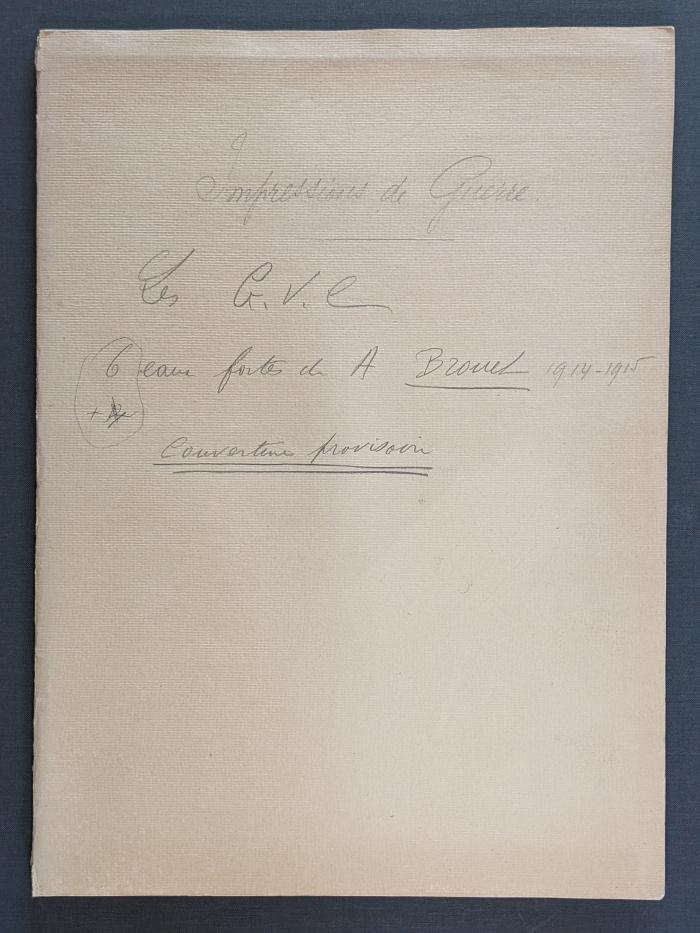 Impressions de Guerre.
Les G.V.C
6 eaux fortes de A Brouet 1914-1915
+
Couverture provisoire